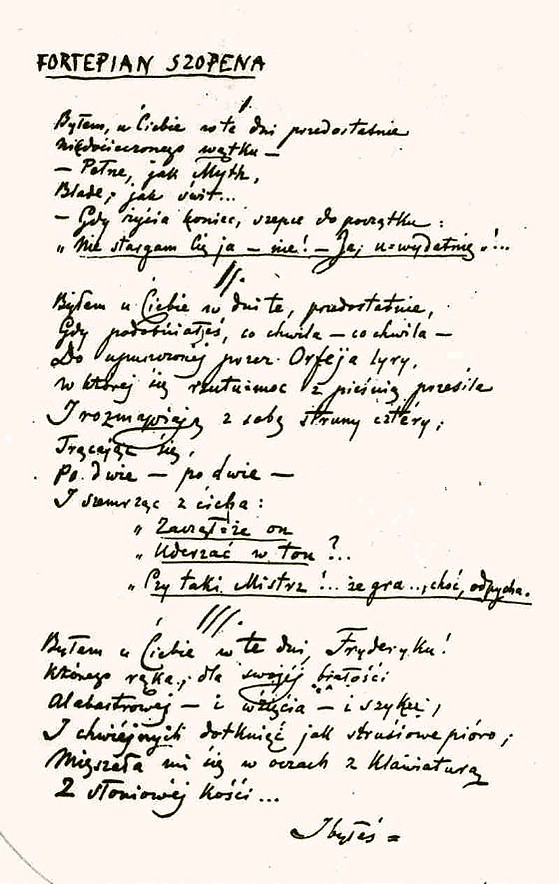 FORTEPIAN SZOPENA
I.
Byłem u Ciebie w te dni przedostatnie
Niedocieczonego wątku —
— Pełne, jak Myth,
Blade, jak świt...
— Gdy życia koniec, szepce do początku:
„Nie stargam Cię ja — nie! — Ja, u-wydatnię!"..
II.
Byłem u Ciebie w dni te, przedostatnie,
Gdy podobniałeś, co chwila — co chwila —
Do upuszczonej przez Orfeja lyry,
W której się rzutu-moc z pieśnią przesila
I rozmawiają z sobą struny cztéry,
Trącając się,
Po dwie — po dwie —
I szemrząc z cicha:
„Zacząłże on
„Uderzać w ton?..
„Czy taki Mistrz!... że gra..., choć, odpycha.
III.
Byłem u Ciebie w te dni, Fryderyku!
Którego ręka, dla swojéj białości
Alabastrowéj — i wzięcia — i szyku,
I chwiejnych dotknięć jak strusiowe pióro,
Mięszała mi się w oczach z klawiaturą
Z słoniowéj kości...
I byłeś =